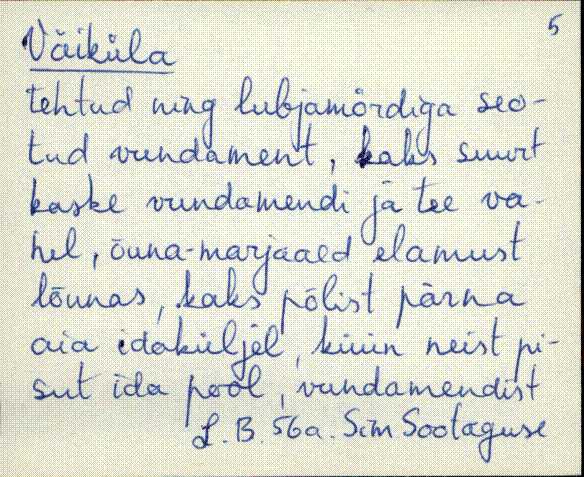 5
Väiküla
tehtud ning lubjamördiga seo-
tud vundament, kaks suurt
kaske vundamendi ja tee va-
hel, õuna-marjaaed elamust
lõunas, kaks põlist pärna
aia idaküljel, küün neist pi-
sut ida pool, vundamendist
L. B. 56a. Sim Sootaguse